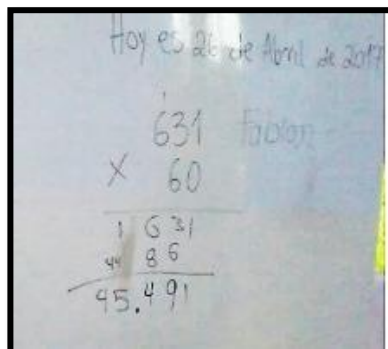 Hoy es 26 de Abril de 2017
1
631 Fabian
X 60
1 6 31
44 8 6
45.491